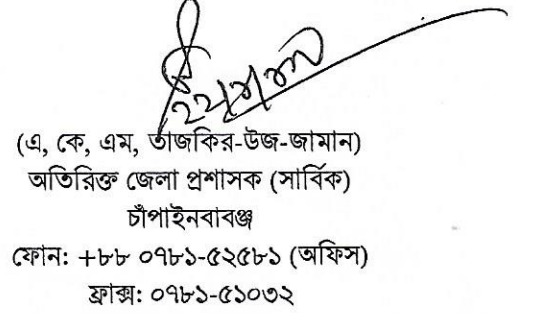 (এ, কে, এম, তাজকির-উজ-জামান)
অতিরিক্ত জেলা প্রশাসক (সার্বিক)
চাঁপাইনবাবঞ্জ
ফোন: +৮৮ ০৭৮১-৫২৫৮১ (অফিস)
ফ্যাক্স: ০৭৮১-৫১০৩২